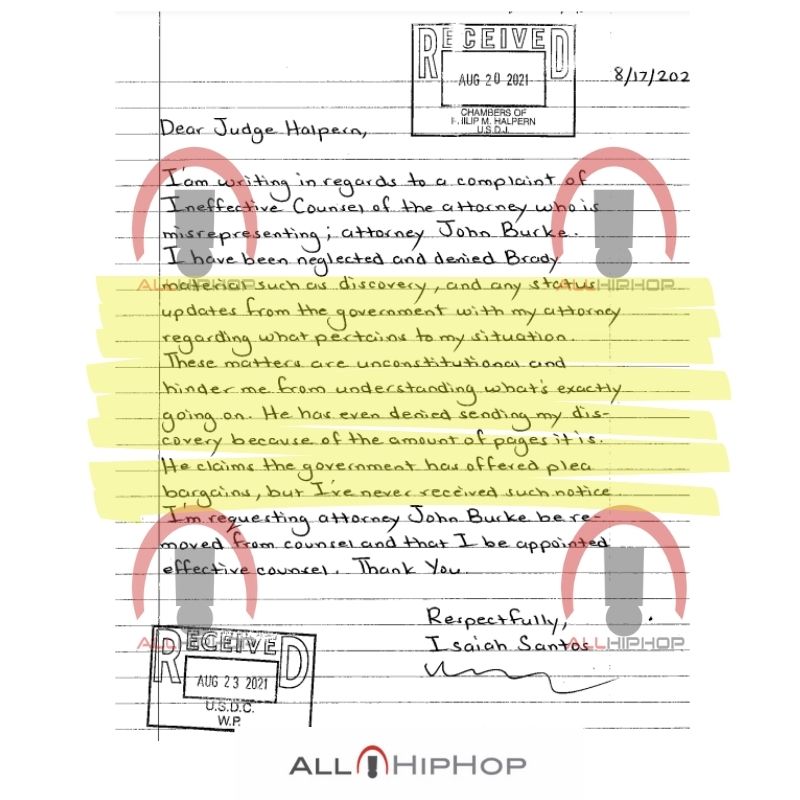 RECEIVED
AUG 20 2021
CHAMBERS OF
ILIP M. HALPERN
U.S.D.J.
8/17/202
Dear Judge Halpern,
I'am writing in regards to a complaint of
Ineffective Counsel of the attorney who is
misrepresenting; attorney John Burke.
I have been neglected and denied Brady
material such as discovery, and any status
updates from the government with my attorney
regarding what pertains to my situation.
These matters are unconstitutional and
hinder me from understanding what's exactly
going on. He has even denied sending my dis-
covery because of the amount of pages it is.
He claims the government has offered plea
bargains, but I've never received such notice
I'm requesting attorney John Burke be re-
moved from counsel and that I be appointed
effective counsel. Thank You.
Respectfully,
Isaiah Santos
RECEIVED
AUG 23 2021
U.S.D.C.
W.P.
ALLHIPHOP
ALLHIPHOP
ALLHIPHOP
ALLHIPHOP
ALLHIPHOP